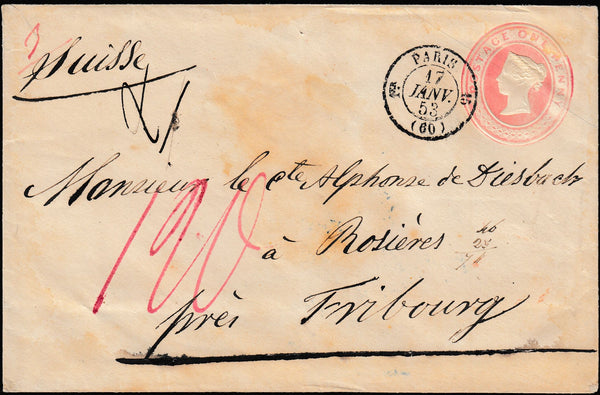 Suisse
PARIS
17
JANV.
53
(60)
POSTAGE ONE PENNY
Monsieur le Cte Alphonse de Diesbach
à Rosières
près Fribourg
190